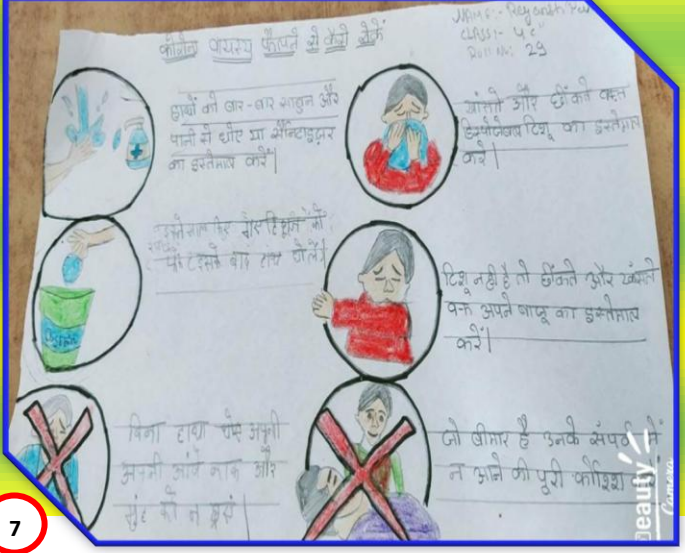 NAME:-
CLASS:- 4 C
ROLL NO: 29
कोरोना वायरस फैलने से कैसे रोकें
हाथों को बार-बार साबुन और
पानी से धोए या सैनिटाइज़र
का इस्तेमाल करें|
खांसते और छींकते वक्त
डिस्पोजेबल टिशू का इस्तेमाल
करें|
बाद हाथ धोलें|
टिशू नही है तो छींकते और खांसते
वक्त अपने बाजू का इस्तेमाल
करें|
बिना हाथ धोए अपनी
अपनी आंखे नाक और
मुंह को न छुएं|
जो बीमार है उनके संपर्क में
न आने की पुरी कोशिश
Beauty
Camera
7